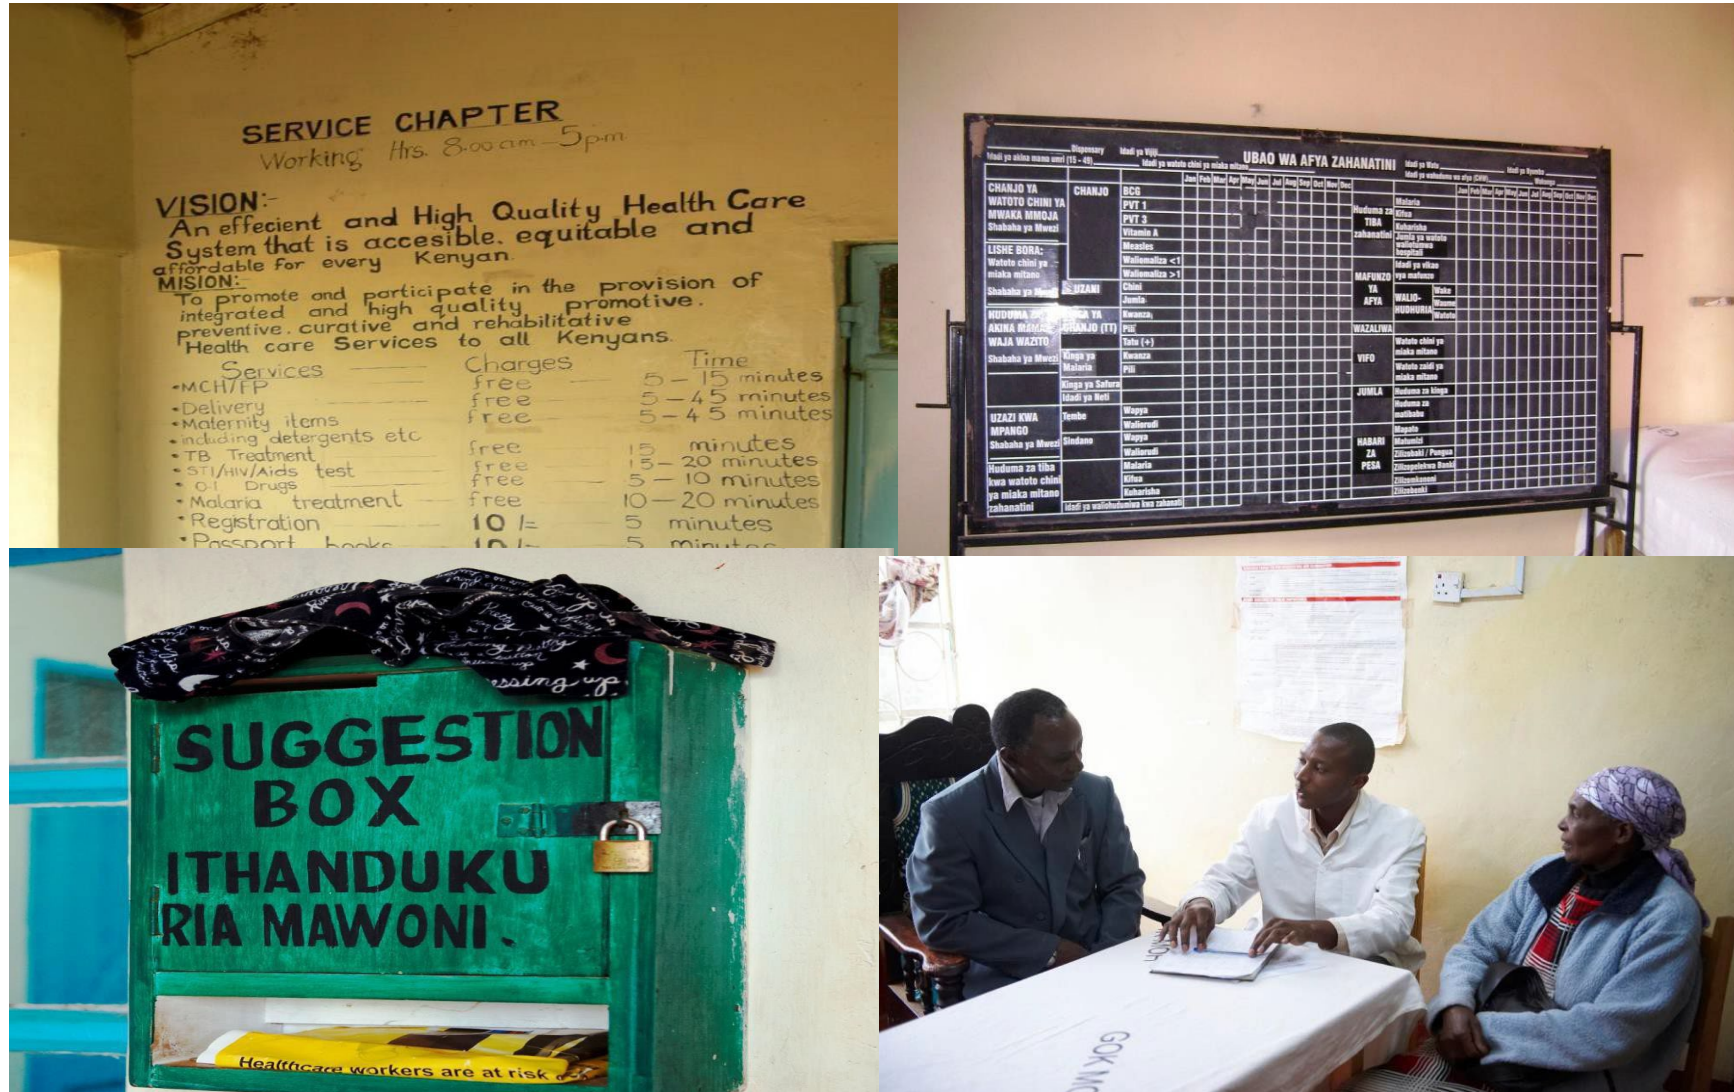 SERVICE CHAPTER
Working Hrs. 8.00am - 5p.m.
VISION:-
An effecient and High Quality Health Care
System that is accesible. equitable and
affordable for every Kenyan.
MISION:-
To promote and participate in the provision of
integrated and high quality promotive.
preventive. curative and rehabilitative
Health care Services to all Kenyans.
Services Charges Time
• MCH/FP free 5 - 15 minutes
• Delivery free 5 - 45 minutes
• Maternity items free 5 - 45 minutes
• including detergents etc
• TB Treatment free 15 minutes
• STI/HIV/Aids test free 15 - 20 minutes
• O.I Drugs free 5 - 10 minutes
• Malaria treatment free 10 - 20 minutes
• Registration 10/= 5 minutes
• Passport books 10/= 5 minutes
UBAO WA AFYA ZAHANATINI
Dispensary
Idadi ya Vijiji
Idadi ya akina mama umri (15 - 49)
Idadi ya watoto chini ya miaka mitano
Idadi ya Watu
Idadi ya Nyumba
Idadi ya wahudumu wa afya (CHW)
Jan Feb Mar Apr May Jun Jul Aug Sep Oct Nov Dec
Jan Feb Mar Apr May Jun Jul Aug Sep Oct Nov Dec
CHANJO YA
WATOTO CHINI YA
MWAKA MMOJA
Shabaha ya Mwezi
CHANJO
BCG
PVT 1
PVT 3
Vitamin A
Measles
Waliomaliza <1
Waliomaliza >1
LISHE BORA:
Watoto chini ya
miaka mitano
Shabaha ya
UZANI
Chini
Jumla
HUDUMA
AKINA MAMA
WAJA WAZITO
Shabaha ya Mwezi
YA
CHANJO (TT)
Kwanza
Pili
Tatu (+)
Kinga ya
Malaria
Kwanza
Pili
Kinga ya Safura
Idadi ya Neti
UZAZI KWA
MPANGO
Shabaha ya Mwezi
Tembe
Wapya
Waliorudi
Sindano
Wapya
Waliorudi
Huduma za tiba
kwa watoto chini
ya miaka mitano
zahanatini
Malaria
Kifua
Kuharisha
Idadi ya waliohudumiwa kwa zahanati
Huduma za
TIBA
zahanatini
Malaria
Kifua
Kuharisha
Jumla ya watoto
waliotumwa
hospitali
MAFUNZO
YA
AFYA
Idadi ya vikao
vya mafunzo
WALIO-
HUDHURIA
Wake
Waume
Watoto
WAZALIWA
VIFO
Watoto chini ya
miaka mitano
Watoto zaidi ya
miaka mitano
JUMLA
Huduma za kinga
Huduma za
matibabu
HABARI
ZA
PESA
Mapato
Matumizi
Zilizobaki / Pungua
Zilizopelekwa Banki
Zilizomkononi
Zilizobenki
SUGGESTION
BOX
ITHANDUKU
RIA MAWONI.
essing up
Healthcare workers are at risk
GOK